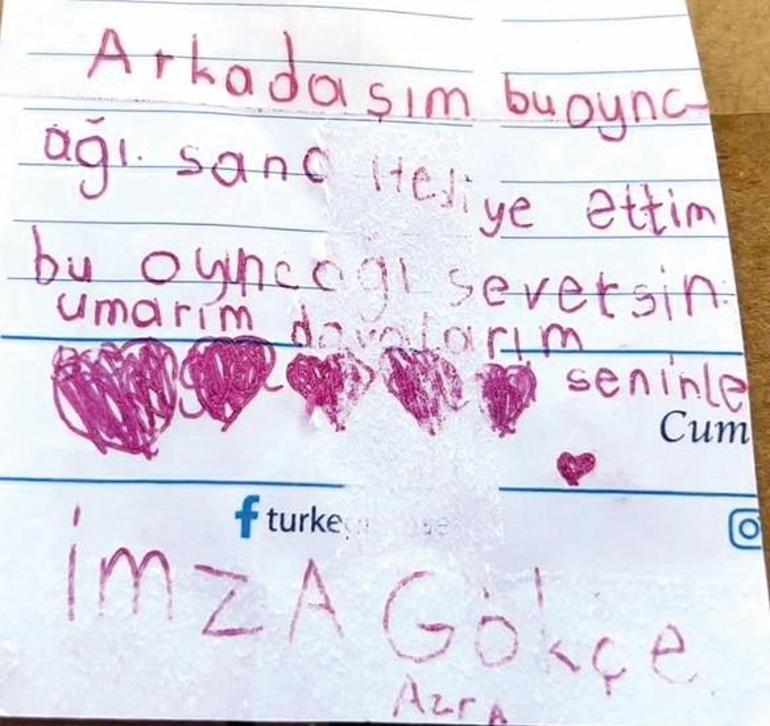 Arkadaşım bu oyna
ağı. sana Hediye ettim
bu oyncağı seversin.
umarım dovalarım
seninle
Cum
turke
İmZA Gökçe
AzrA